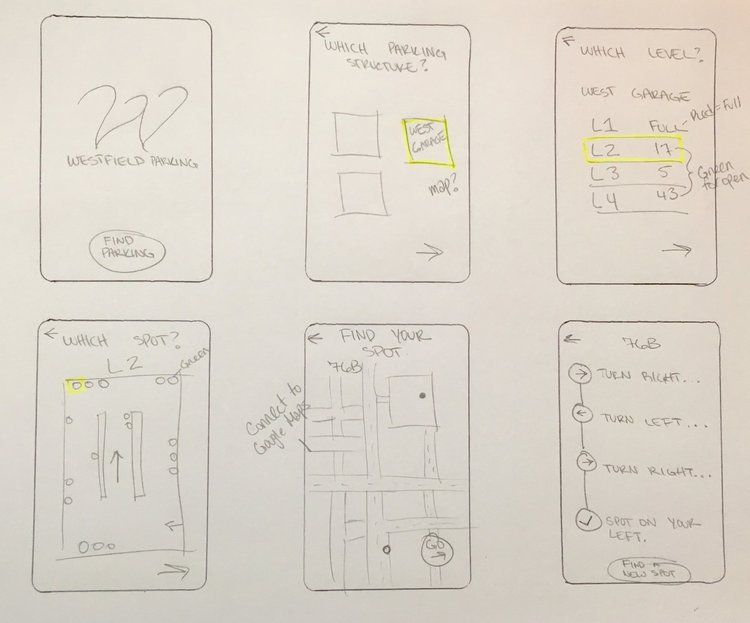 W
WESTFIELD PARKING
FIND
PARKING
WHICH PARKING
STRUCTURE?
WEST
GARAGE
map?
WHICH LEVEL?
WEST GARAGE
L1 FULL
Red = Full
L2 17
L3 5
L4 43
Green
for open
WHICH SPOT?
L2
Green
FIND YOUR
SPOT.
76B
Connect to
Google Maps
GO
76B
TURN RIGHT...
TURN LEFT...
TURN RIGHT...
SPOT ON YOUR
LEFT.
FIND A
NEW SPOT